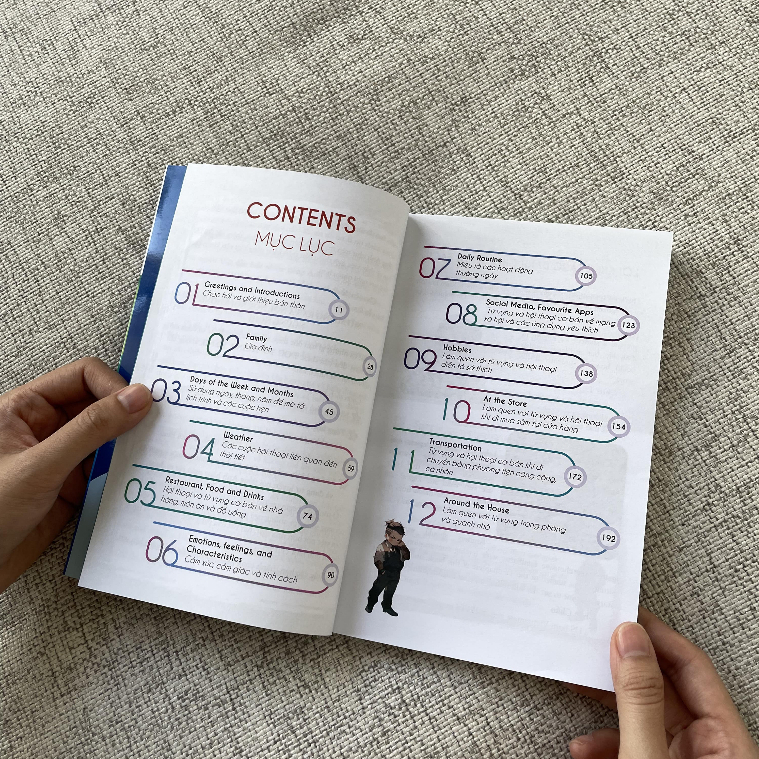 CONTENTS
MỤC LỤC
01
Greetings and Introductions
Chào hỏi và giới thiệu bản thân
11
02
Family
Gia đình
03
Days of the Week and Months
Sử dụng ngày, tháng, năm để mô tả
lịch trình và các cuộc hẹn
45
04
Weather
Các cuộc hội thoại liên quan đến
thời tiết
05
Restaurant, Food and Drinks
Hội thoại và từ vựng cơ bản về nhà
hàng, món ăn và đồ uống
74
06
Emotions, feelings, and
Characteristics
Cảm xúc, cảm giác và tính cách
90
07
Daily Routine
Miêu tả các hoạt động
thường ngày
105
08
Social Media, Favourite Apps
Từ vựng và hội thoại cơ bản về mạng
xã hội và các ứng dụng yêu thích
123
09
Hobbies
Làm quen với từ vựng và hội thoại
diễn tả sở thích
138
10
At the Store
Làm quen với từ vựng và hội thoại
khi đi mua sắm tại cửa hàng
154
11
Transportation
Từ vựng và hội thoại cơ bản khi di
chuyển bằng phương tiện công cộng,
cá nhân
172
12
Around the House
Làm quen với từ vựng trong phòng
và quanh nhà
192